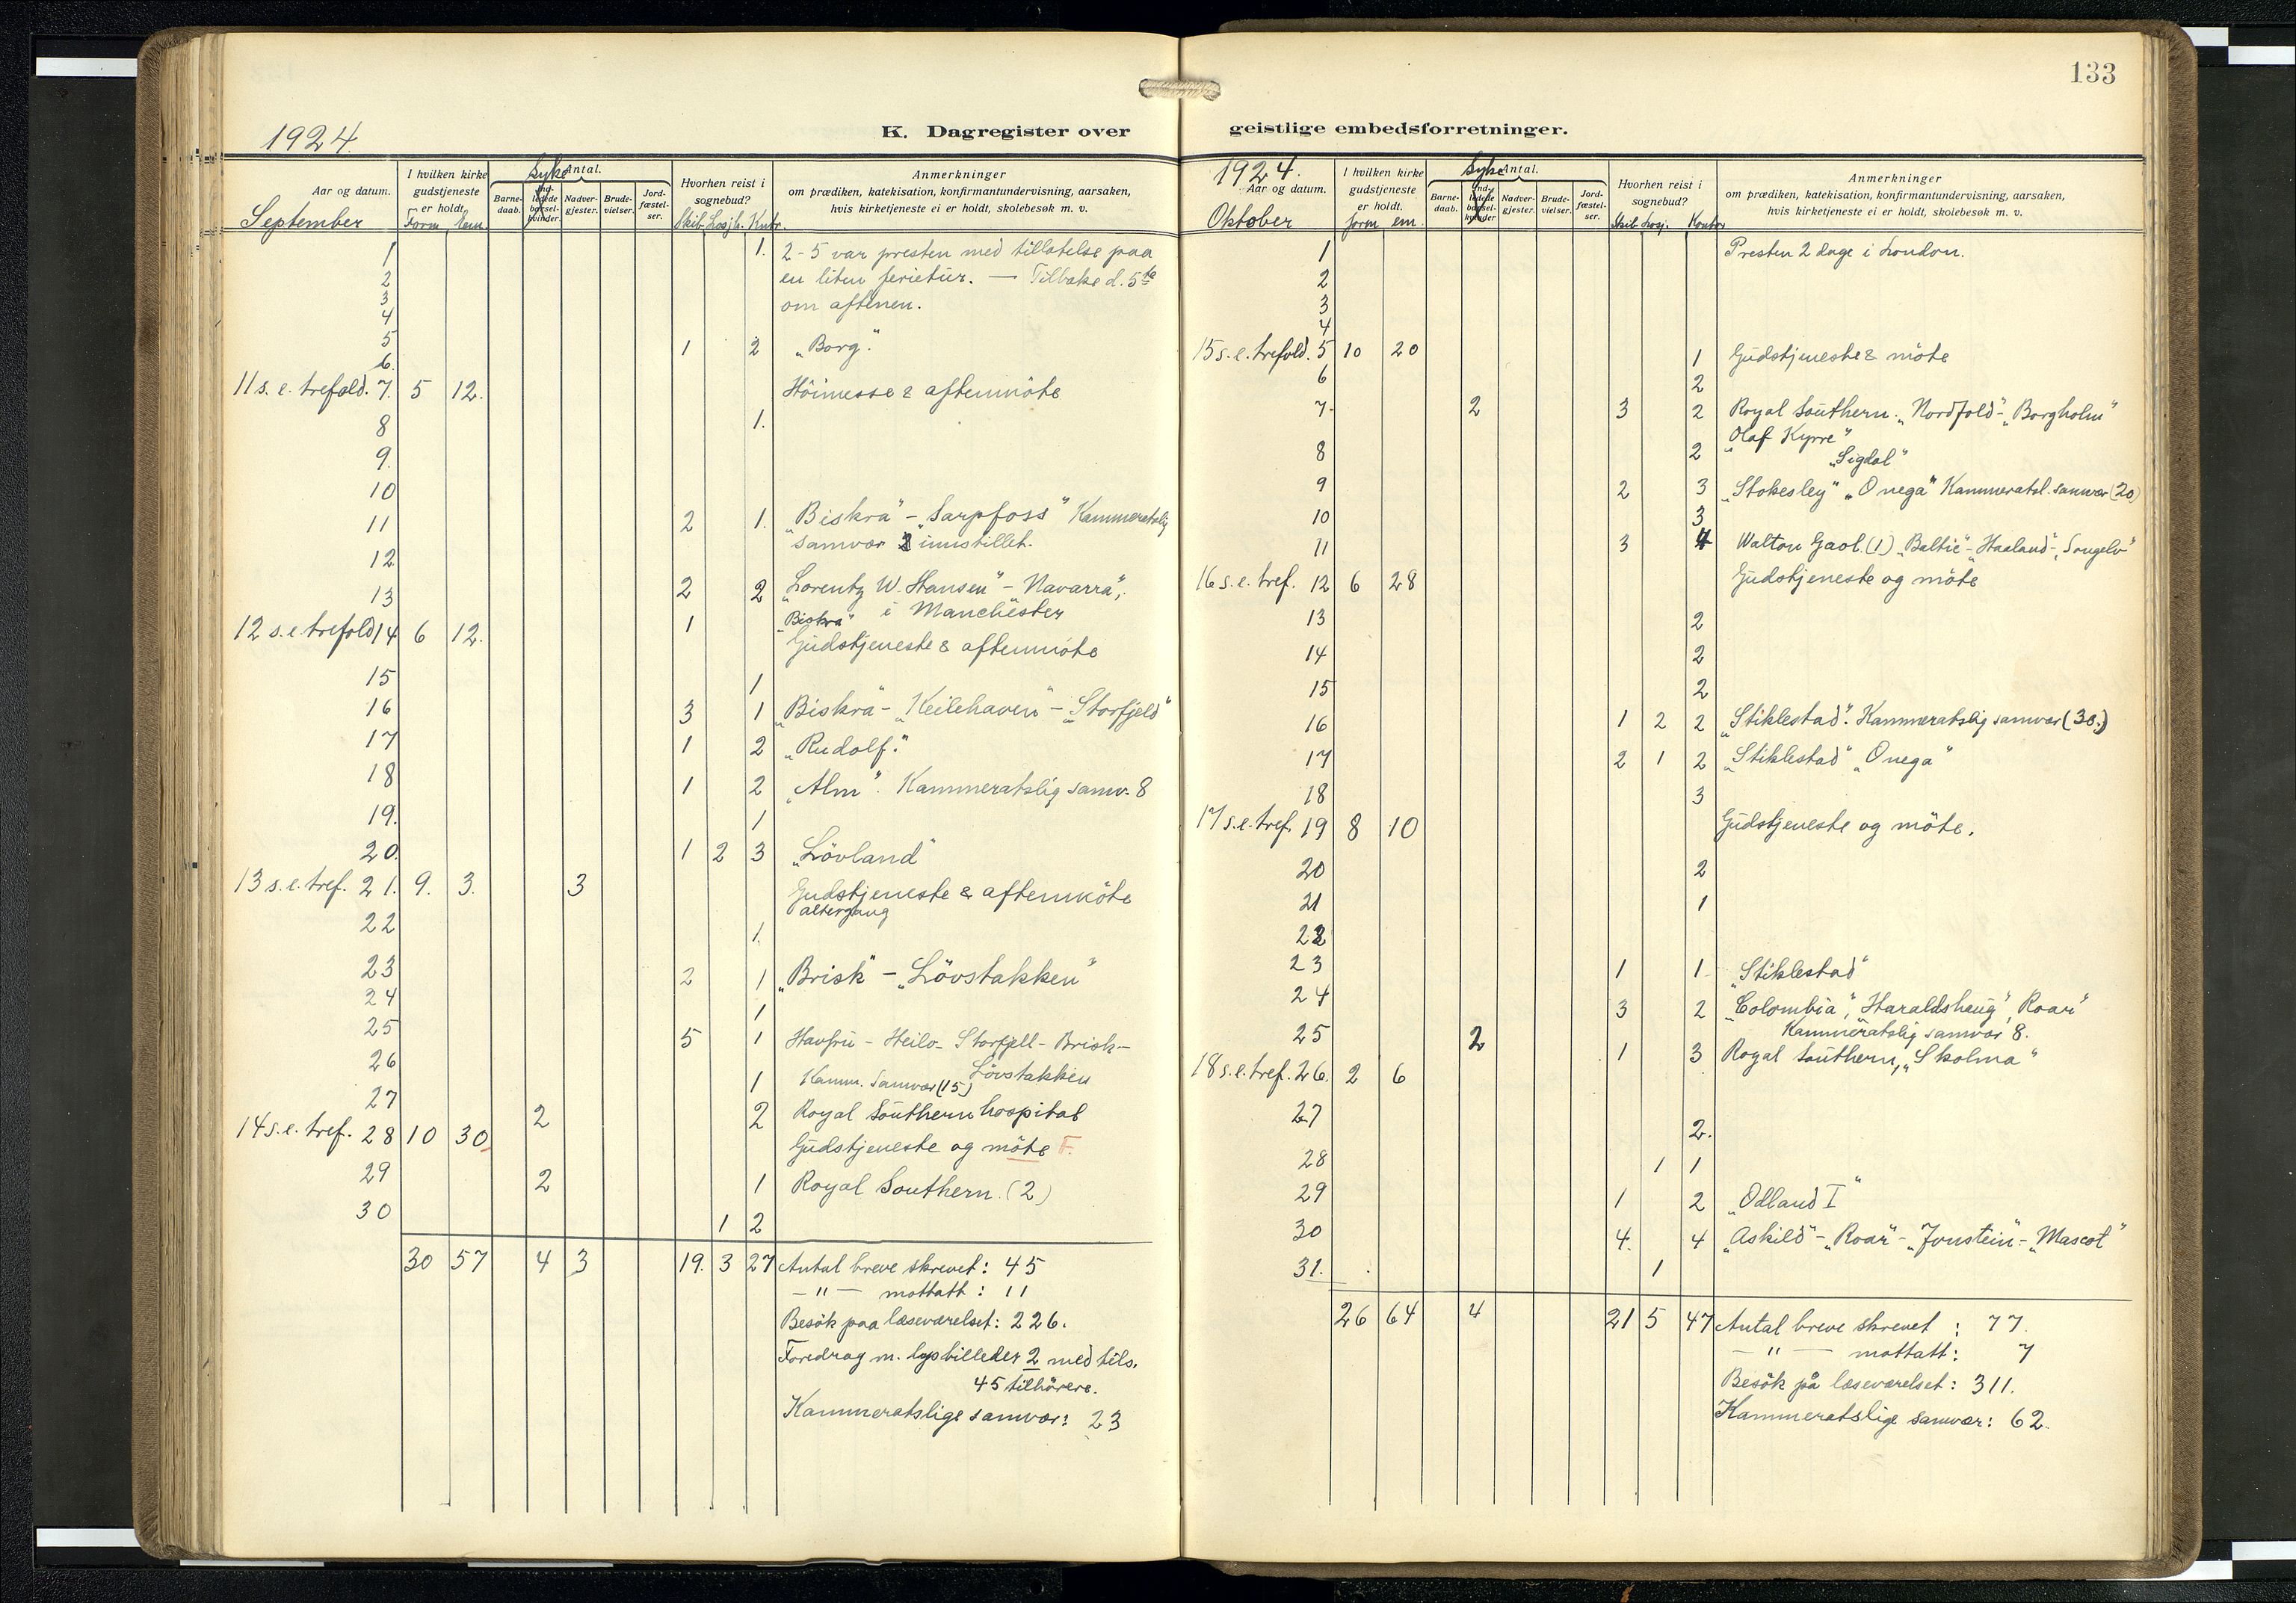 133
K. Dagregister over geistlige embedsforretninger.
1924
Aar og datum.
September
I hvilken kirke gudstjeneste er holdt.
Form. Em.
Syke
Antal.
Barnedaab. Indledede barselkvinder. Nadvergjester. Brudevielser. Jordfæstelser.
Hvorhen reist i sognebud?
Skib. Losji. Kntr.
Anmerkninger
om prædiken, katekisation, konfirmantundervisning, aarsaken,
hvis kirketjeneste ei er holdt, skolebesøk m. v.
1 1. 2-5 var presten med tillatelse paa
2 en liten ferietur. — Tilbake d. 5te
3 om aftenen.
4
5 1 2 „Borg".
6.
11 s. e. trefold. 7. 5 12. Höimesse & aftenmöte
8 1.
9.
10
11 2 1. „Biskra" - „Sarpfoss" Kammeratslig
samvær innstillet.
12
13 2 2 „Lorentz W. Hansen" - Navarra",
i Manchester
12 s. e. trefold 14 6 12. 1 „Biskra"
Gudstjeneste & aftenmöte
15 1
16 3 1 „Biskra" - „Keilehaven" - „Storfjeld"
17 1 2 „Rudolf."
18 1 2 „Alm". Kammeratslig samv. 8
19. 1
20. 1 2 3 „Lövland"
13 s. e. tref. 21. 9. 3. 3 Gudstjeneste & aftenmöte
altergang
22 1.
23 2 1 „Brisk" - „Lövstakken"
24 1
25 5 1 Havfru - Heilo - Storfjell - Brisk -
Lövstakken
26 1 Kamm. samvær (15)
27 2 2 Royal Southern hospital
14 s. e. tref. 28 10 30 Gudstjeneste og möte F.
29 2 1 Royal Southern. (2)
30 1 2
30 57 4 3 19. 3 27 Antal breve skrevet: 45
— " — mottatt: 11
Besök paa læseværelset: 226.
Foredrag m. lysbilleder 2 med tils.
45 tilhörere.
Kammeratslige samvær: 23
1924.
Aar og datum.
Oktober
I hvilken kirke gudstjeneste er holdt.
form em.
Syke
Antal.
Barnedaab. Indledede barselkvinder Nadvergjester. Brudevielser. Jordfæstelser.
Hvorhen reist i sognebud?
Skib Losj. Kontor
Anmerkninger
om prædiken, katekisation, konfirmantundervisning, aarsaken,
hvis kirketjeneste ei er holdt, skolebesøk m. v.
1 Presten 2 dage i London.
2
3
4
15 s. e. trefold. 5 10 20 1 Gudstjeneste & möte
6 2
7. 2 3 2 Royal Southern. „Nordfold" - „Borgholm"
„Olaf Kyrre"
8 2 „Sigdal"
9 2 3 „Stokesley" „Onega" Kammeratsl. samvær (20)
10 3
11 3 4 Walton Gaol. (1) „Baltic" - „Haaland" - „Songelv"
16 s. e. tref. 12 6 28 Gudstjeneste og möte
13 2
14 2
15 2
16 1 2 2 „Stiklestad". Kammeratslig samvær (30.)
17 2 1 2 „Stiklestad" „Onega"
18 3
17 s. e. tref. 19 8 10 Gudstjeneste og möte.
20 2
21 1
22
23 1 1 „Stiklestad"
24 3 2 „Colombia", „Haraldshaug", „Roar"
Kammeratslig samvær 8.
25 2 1 3 Royal Southern, „Skolma"
18 s. e. tref. 26. 2 6
27 2.
28 1 1
29 1 2 „Odland I"
30 4. 4 „Askild" - „Roar" - „Jonstein" - „Mascot"
31. 1
26 64 4 21 5 47 Antal breve skrevet : 77.
— " — mottatt: 7
Besök på læseværelset: 311.
Kammeratslige samvær: 62.